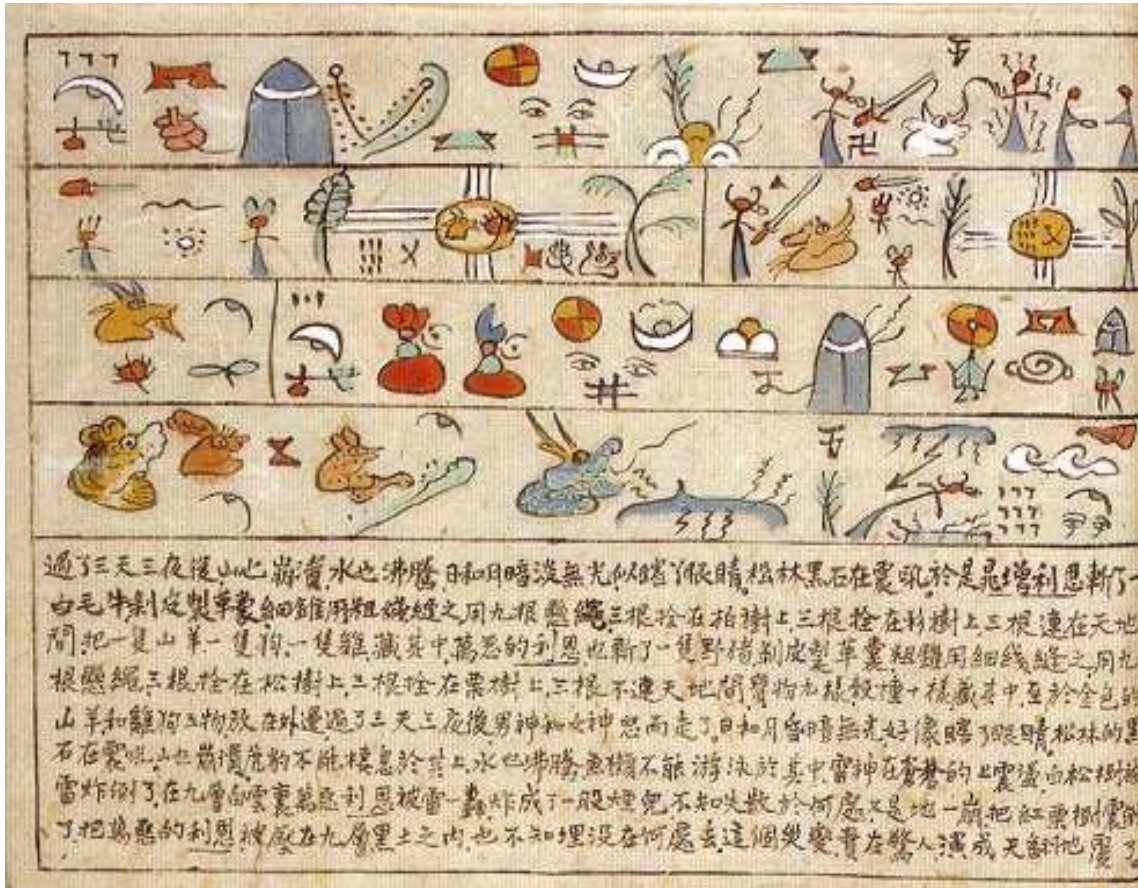 過了三天三夜後山也崩潰,水也沸騰,日和月暗淡無光似瞎了眼睛.松林黑石在震吼.於是晁增利恩斬了一
白毛牛剝皮製革囊,細錐用粗綫縫之用九根懸繩,三根拴在柏樹上三根拴在杉樹上三根連在天地
間.把一隻山羊.一隻狗.一隻雞藏其中,萬惡的利恩也斬了一隻野猪剝皮製革囊粗錐用細綫縫之.用九
根懸繩.三根拴在松樹上,三根拴在栗樹上,三根不連天地間寶物九樣穀種十樣藏其中.至於金色的
山羊和雞狗三物放在外邊過了三天三夜後男神和女神怒而走了.日和月昏暗無光.好像瞎了眼睛.松林的黑
石在震吼.山也崩潰虎豹不能棲息於其上.水也沸騰魚獺不能游泳於其中.雷神在蒼蒼的上震盪.白松樹被
雷炸倒了.在九層白雲裏萬惡利恩被雷一轟炸成了一股烟兒不知失散於何處.又是地一崩把紅栗樹震倒
了.把萬惡的利恩神壓在九層黑土之内.也不知埋没在何處去.這個災變實在驚人.演成天翻地覆了